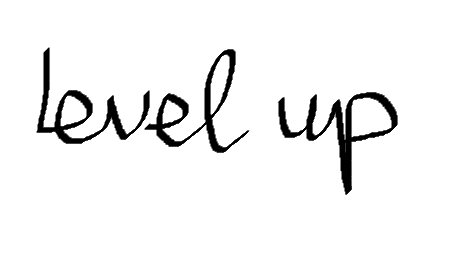 Level up